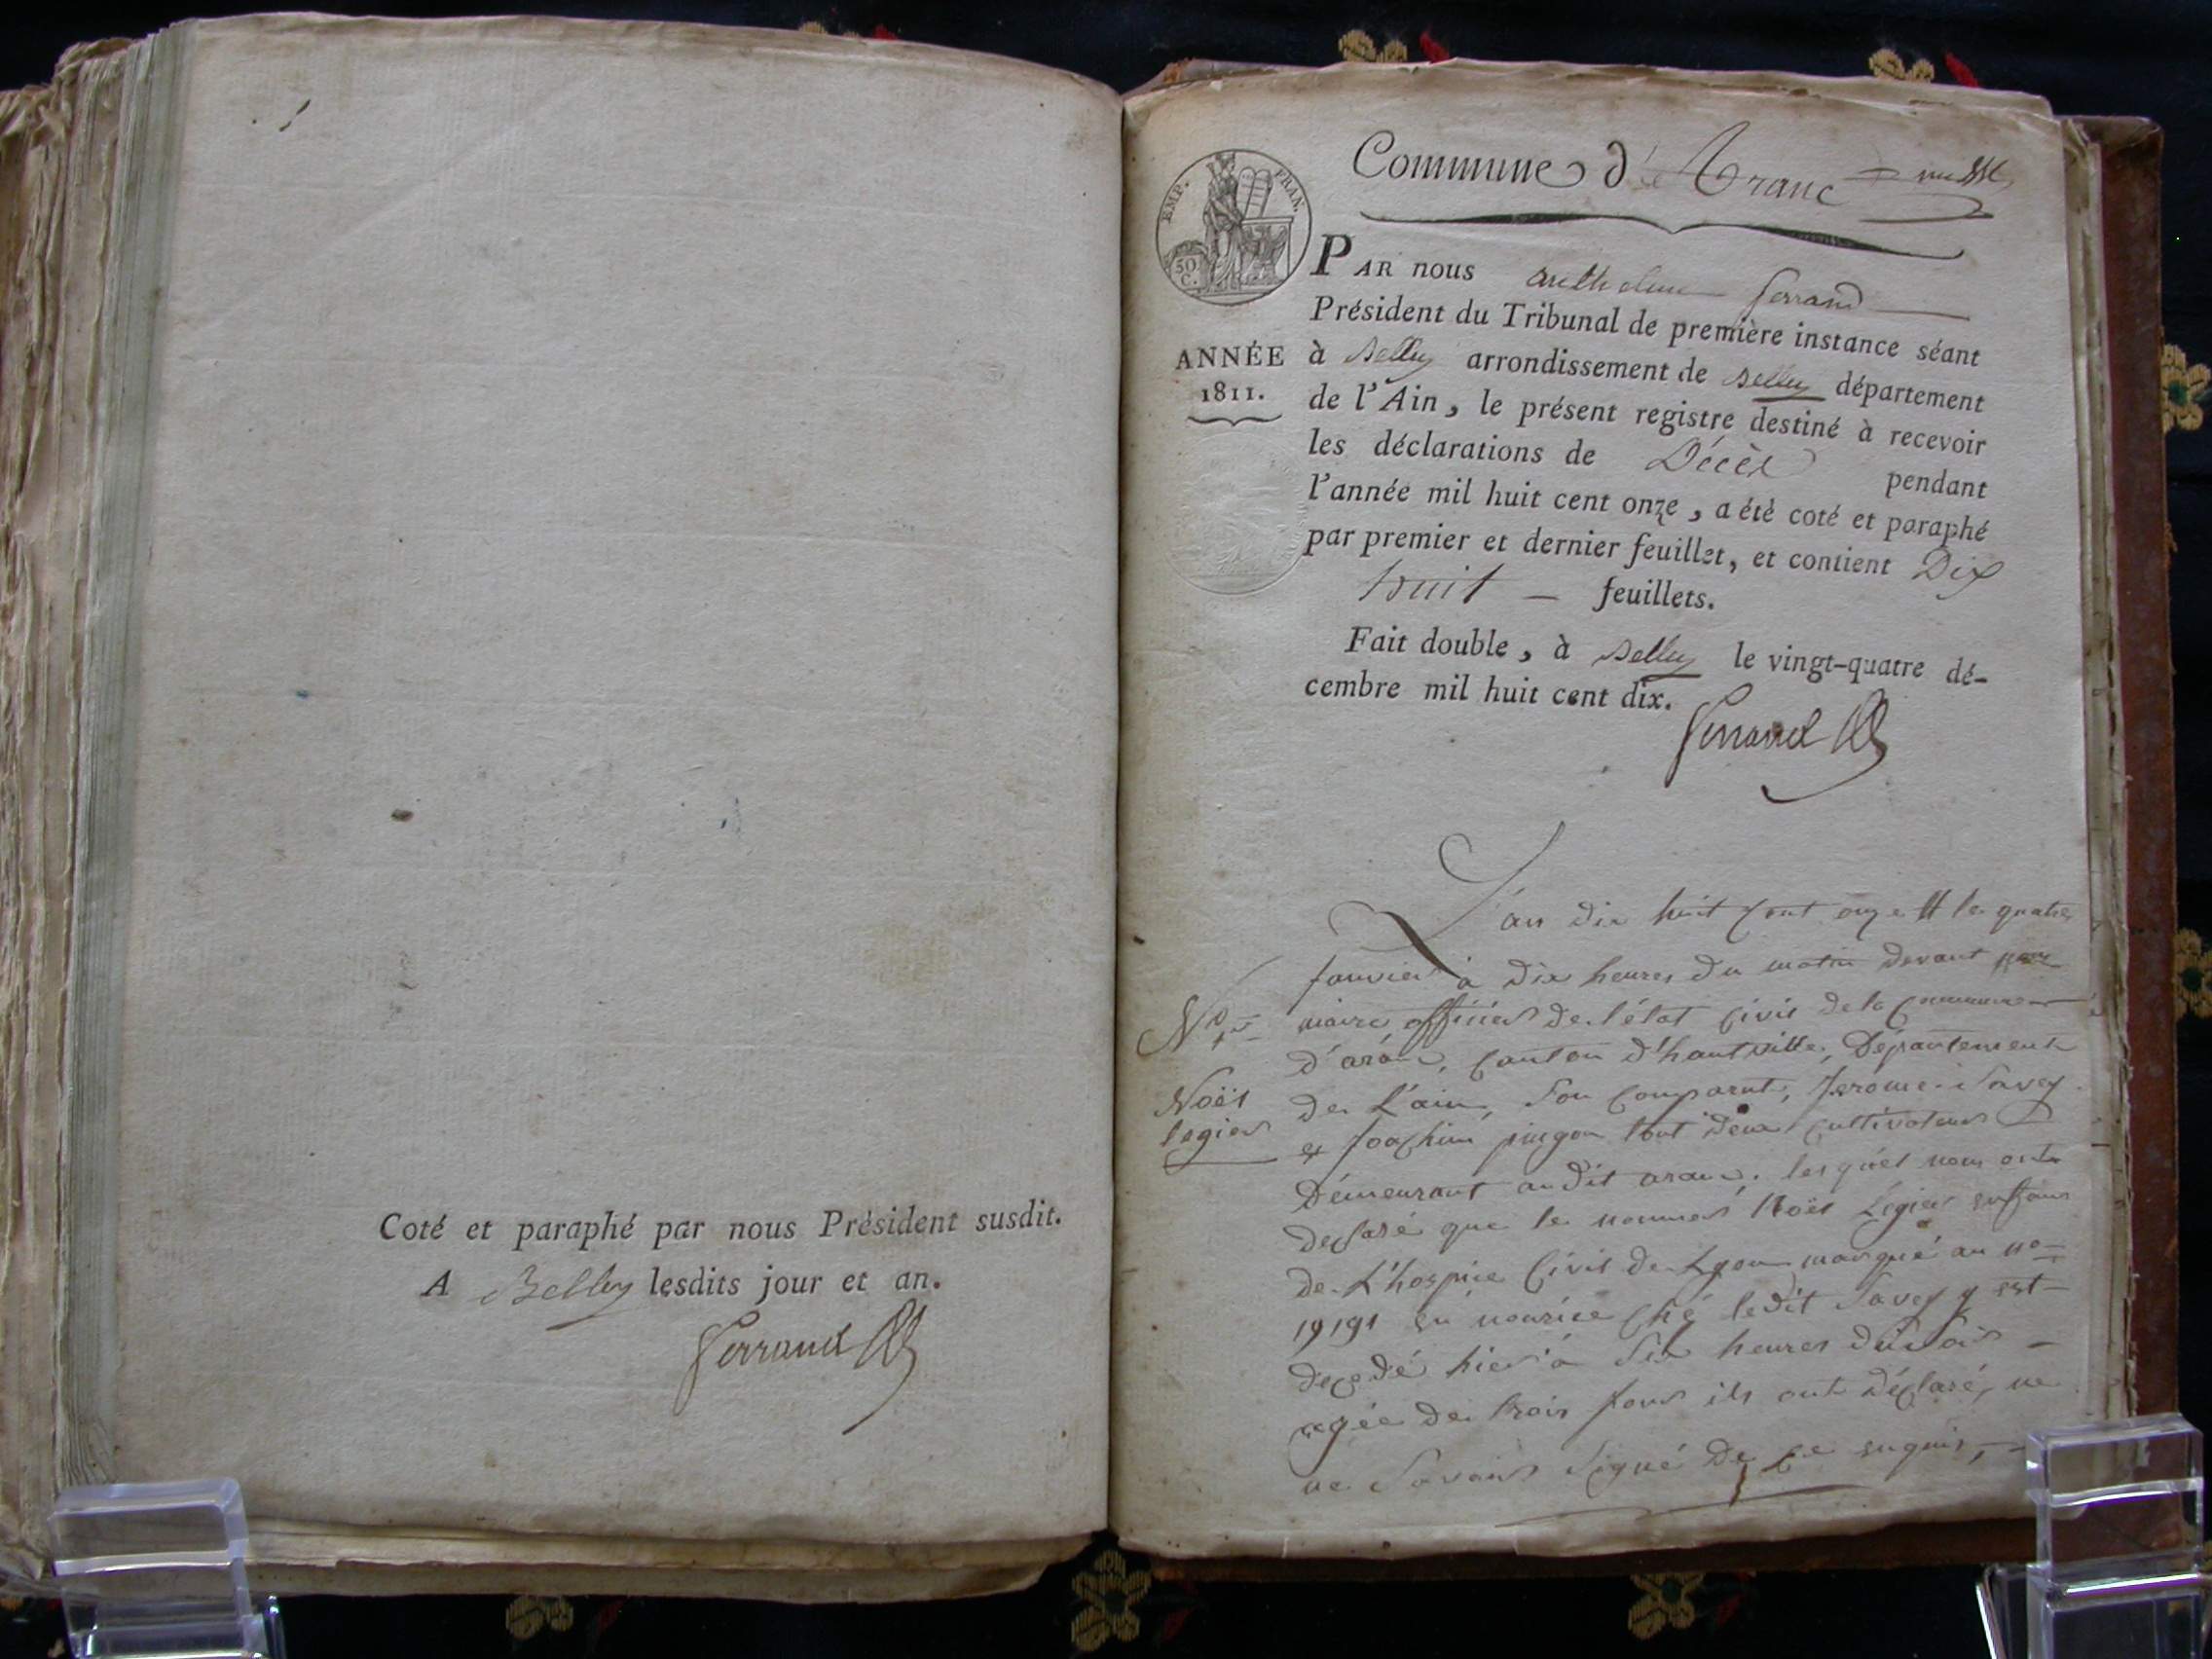 Coté et paraphé par nous Président susdit.
A Belley lesdits jour et an.
Ferrand
Commune d'Aranc
EMP. FRAN.
50 C.
PAR nous anthelme ferrand
Président du Tribunal de première instance séant
ANNÉE
1811.
à Belley arrondissement de Belley département
de l'Ain, le présent registre destiné à recevoir
les déclarations de Décès pendant
l'année mil huit cent onze, a été coté et paraphé
par premier et dernier feuillet, et contient Dix
huit — feuillets.
Fait double, à Belley le vingt-quatre dé-
cembre mil huit cent dix.
Ferrand
L'an dix huit cent onze et le quatre
janvier à dix heures du matin devant nous
maire officier de l'état civil de la commune
d'aranc, canton d'hautville, Département
de L'ain, son comparut, Jerome Savey
et Joachim pingon tout deux cultivateurs
Démeurant audit aranc. lesquel nous ont
declaré que le nommé Noël Légier enffant
de L'hospice Civil de Lyon marqué au no
19191 en nourice ché ledit Savey y est
decedé hier à six heures du soir —
agée de trois jours ils ont déclaré, ne
ne savoir signé de ce enquis,
No 1er
Noël
legier